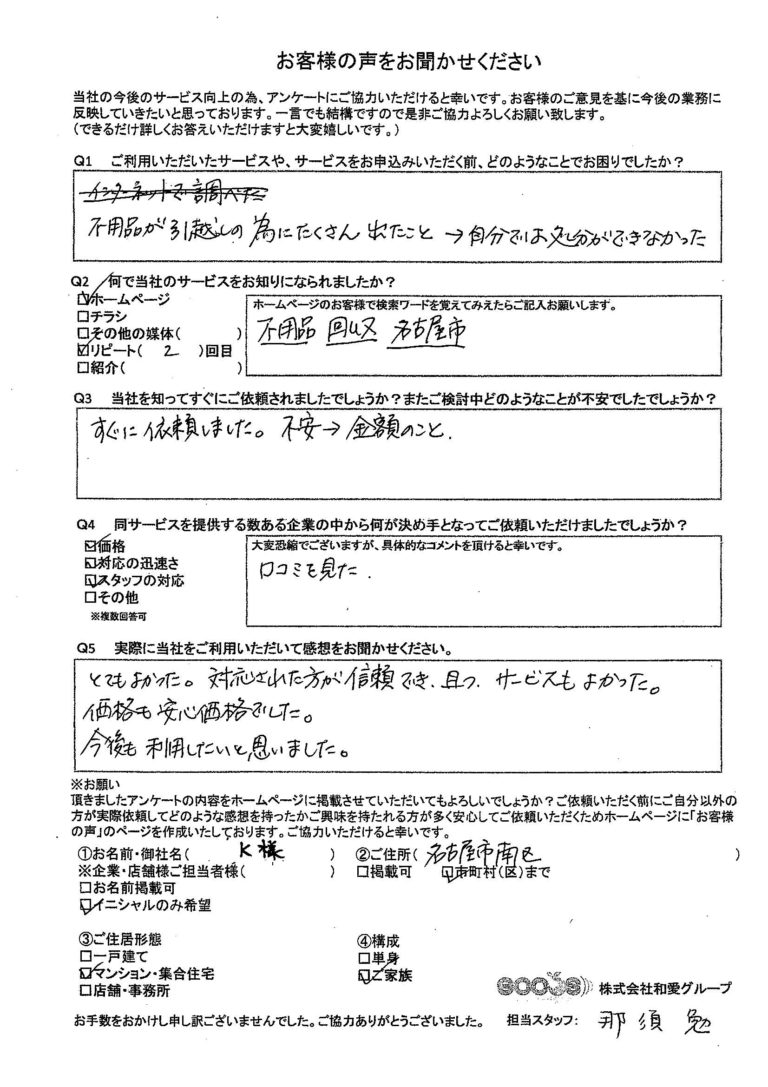 お客様の声をお聞かせください
当社の今後のサービス向上の為、アンケートにご協力いただけると幸いです。お客様のご意見を基に今後の業務に
反映していきたいと思っております。一言でも結構ですので是非ご協力よろしくお願い致します。
(できるだけ詳しくお答えいただけますと大変嬉しいです。)
Q1 ご利用いただいたサービスや、サービスをお申込みいただく前、どのようなことでお困りでしたか？
インターネットで調べた
不用品が引越しの為にたくさん出たこと→自分では処分ができなかった
Q2 何で当社のサービスをお知りになられましたか？
☑ホームページ
□チラシ
□その他の媒体( )
☑リピート( 2 )回目
□紹介( )
ホームページのお客様で検索ワードを覚えてみえたらご記入お願いします。
不用品 回収 名古屋市
Q3 当社を知ってすぐにご依頼されましたでしょうか？またご検討中どのようなことが不安でしたでしょうか？
すぐに依頼しました。不安→金額のこと.
Q4 同サービスを提供する数ある企業の中から何が決め手となってご依頼いただけましたでしょうか？
☑価格
☑対応の迅速さ
☑スタッフの対応
□その他
※複数回答可
大変恐縮でございますが、具体的なコメントを頂けると幸いです。
口コミを見た.
Q5 実際に当社をご利用いただいて感想をお聞かせください。
とてもよかった。対応された方が信頼でき、且つ、サービスもよかった。
価格も安心価格でした。
今後も利用したいと思いました。
※お願い
頂きましたアンケートの内容をホームページに掲載させていただいてもよろしいでしょうか？ご依頼いただく前にご自分以外の
方が実際依頼してどのような感想を持ったかご興味を持たれる方が多く安心してご依頼いただくためホームページに｢お客様
の声｣のページを作成いたしております。ご協力いただけると幸いです。
①お名前・御社名( K様 ) ②ご住所( 名古屋市南区 )
※企業・店舗様ご担当者様( ) □掲載可 ☑市町村(区)まで
□お名前掲載可
☑イニシャルのみ希望
③ご住居形態
□一戸建て
☑マンション・集合住宅
□店舗・事務所
④構成
□単身
☑ご家族
GOOJS 株式会社和愛グループ
お手数をおかけし申し訳ございませんでした。ご協力ありがとうございました。 担当スタッフ： 那須 勉